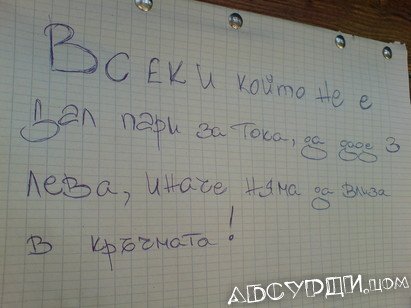 Всеки който не е
дал пари за тока, да даде 3
лева, иначе няма да влиза
в кръчмата!
АБСУРДИ.цом